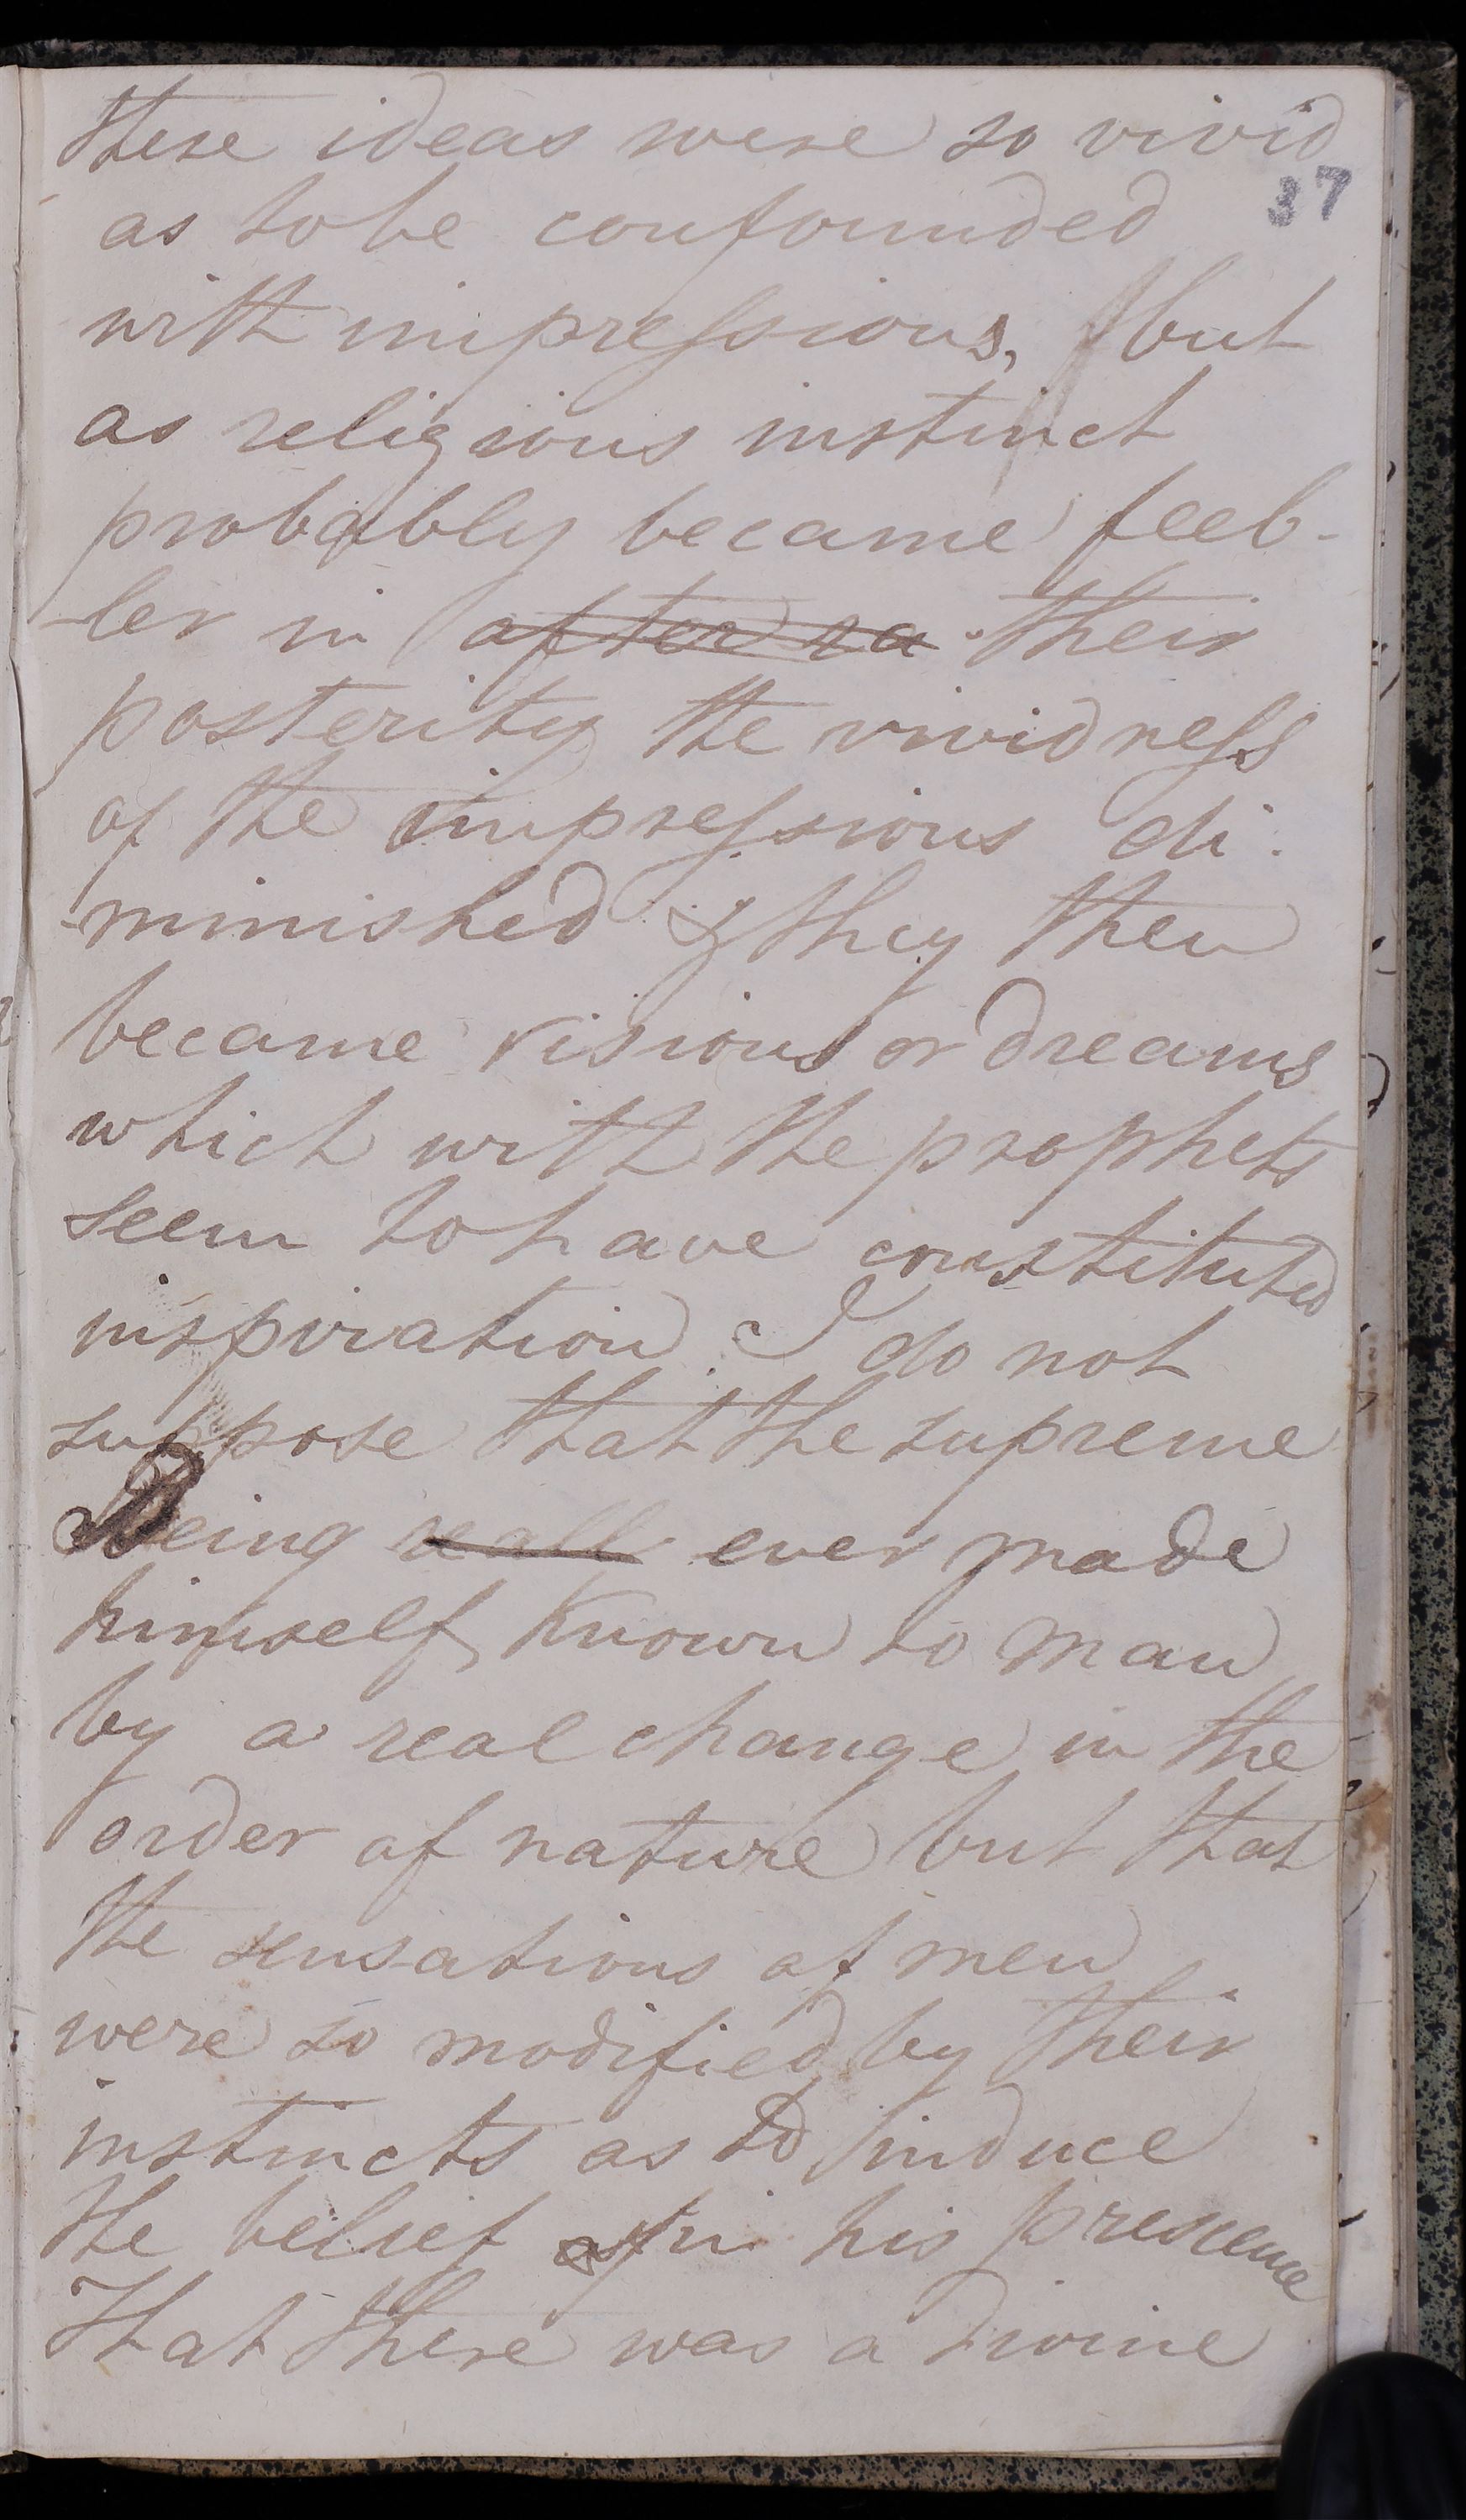 these ideas were so vivid
37
as to be confounded
with impressions, but
as religious instinct
probably became feeb-
-ler in after ra their
posterity the vividness
of the impressions di-
-minished & they then
became visions or dreams
which with the prophets
seem to have constituted
inspiration. I do not
suppose that the supreme
Being reall ever made
himself known to man
by a real change in the
order of nature but that
the sensations of men
were so modified by their
instincts as to induce
the belief of in his prescence
That there was a divine